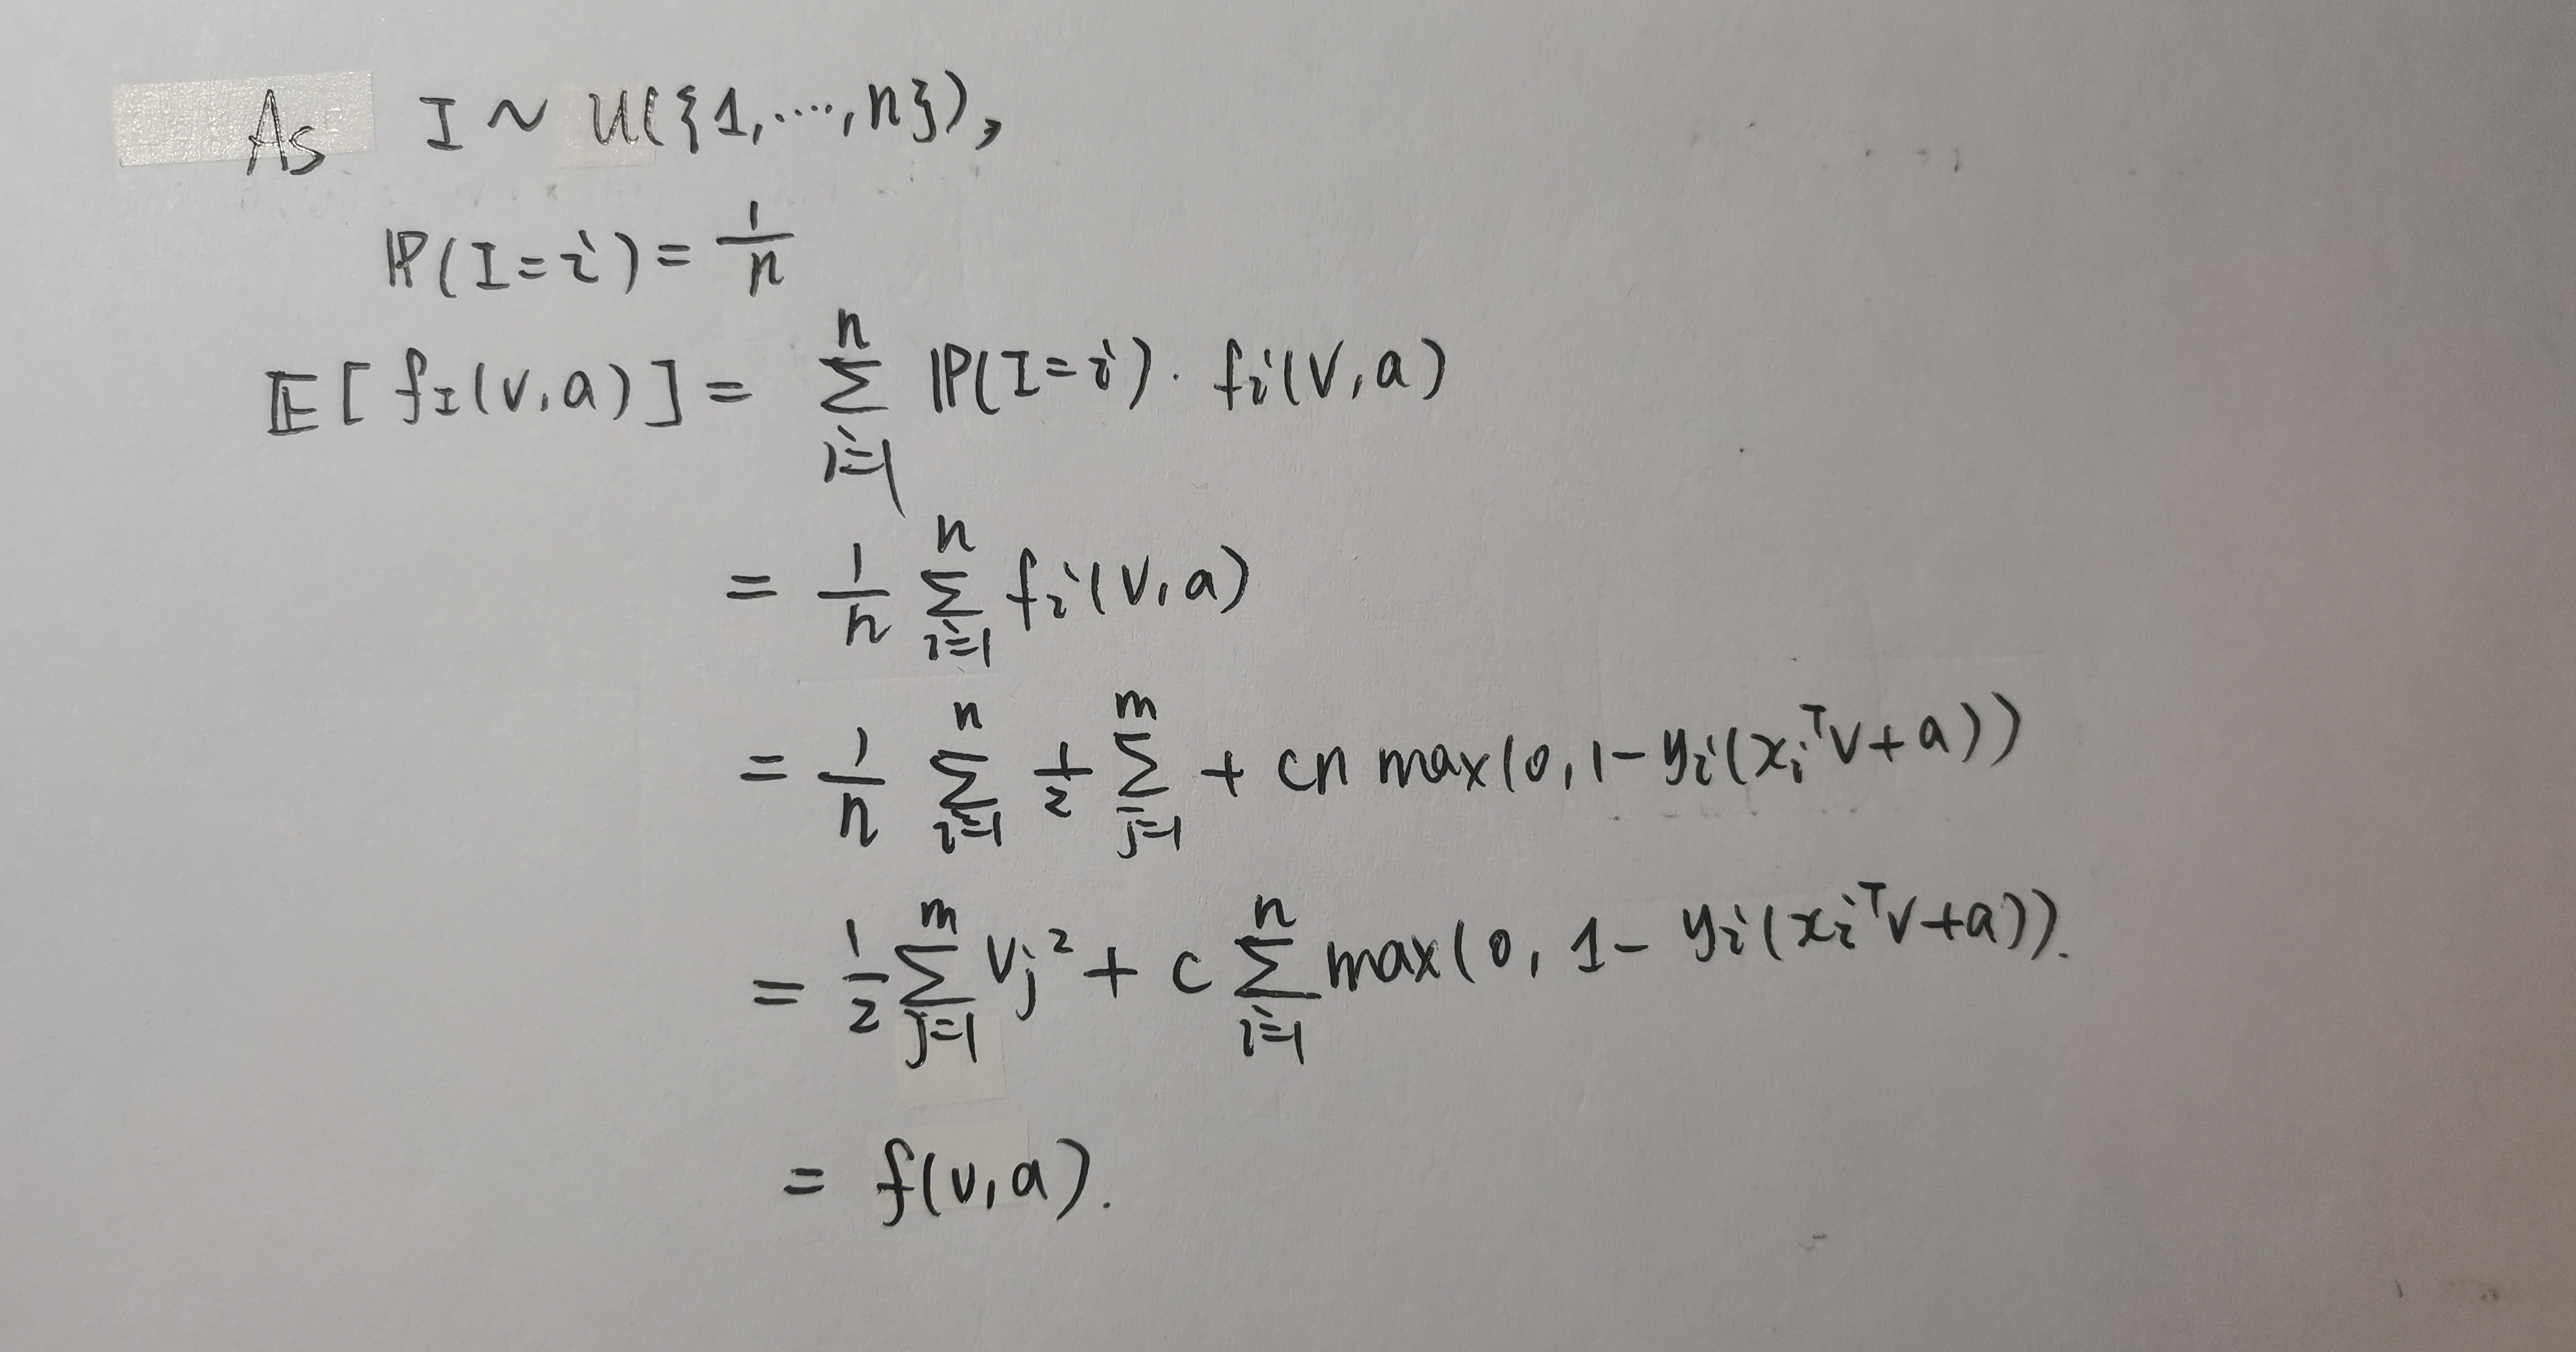 As I ~ U({1,⋯,n}),
ℙ(I=i) = 1/n
𝔼[f_I(v,a)] = ∑_{i=1}^{n} ℙ(I=i) · f_i(v,a)
= 1/n ∑_{i=1}^{n} f_i(v,a)
= 1/n ∑_{i=1}^{n} 1/2 ∑_{j=1}^{m} + cn max(0, 1-y_i(x_i^T v+a))
= 1/2 ∑_{j=1}^{m} v_j^2 + c ∑_{i=1}^{n} max(0, 1- y_i(x_i^T v+a)).
= f(v,a).